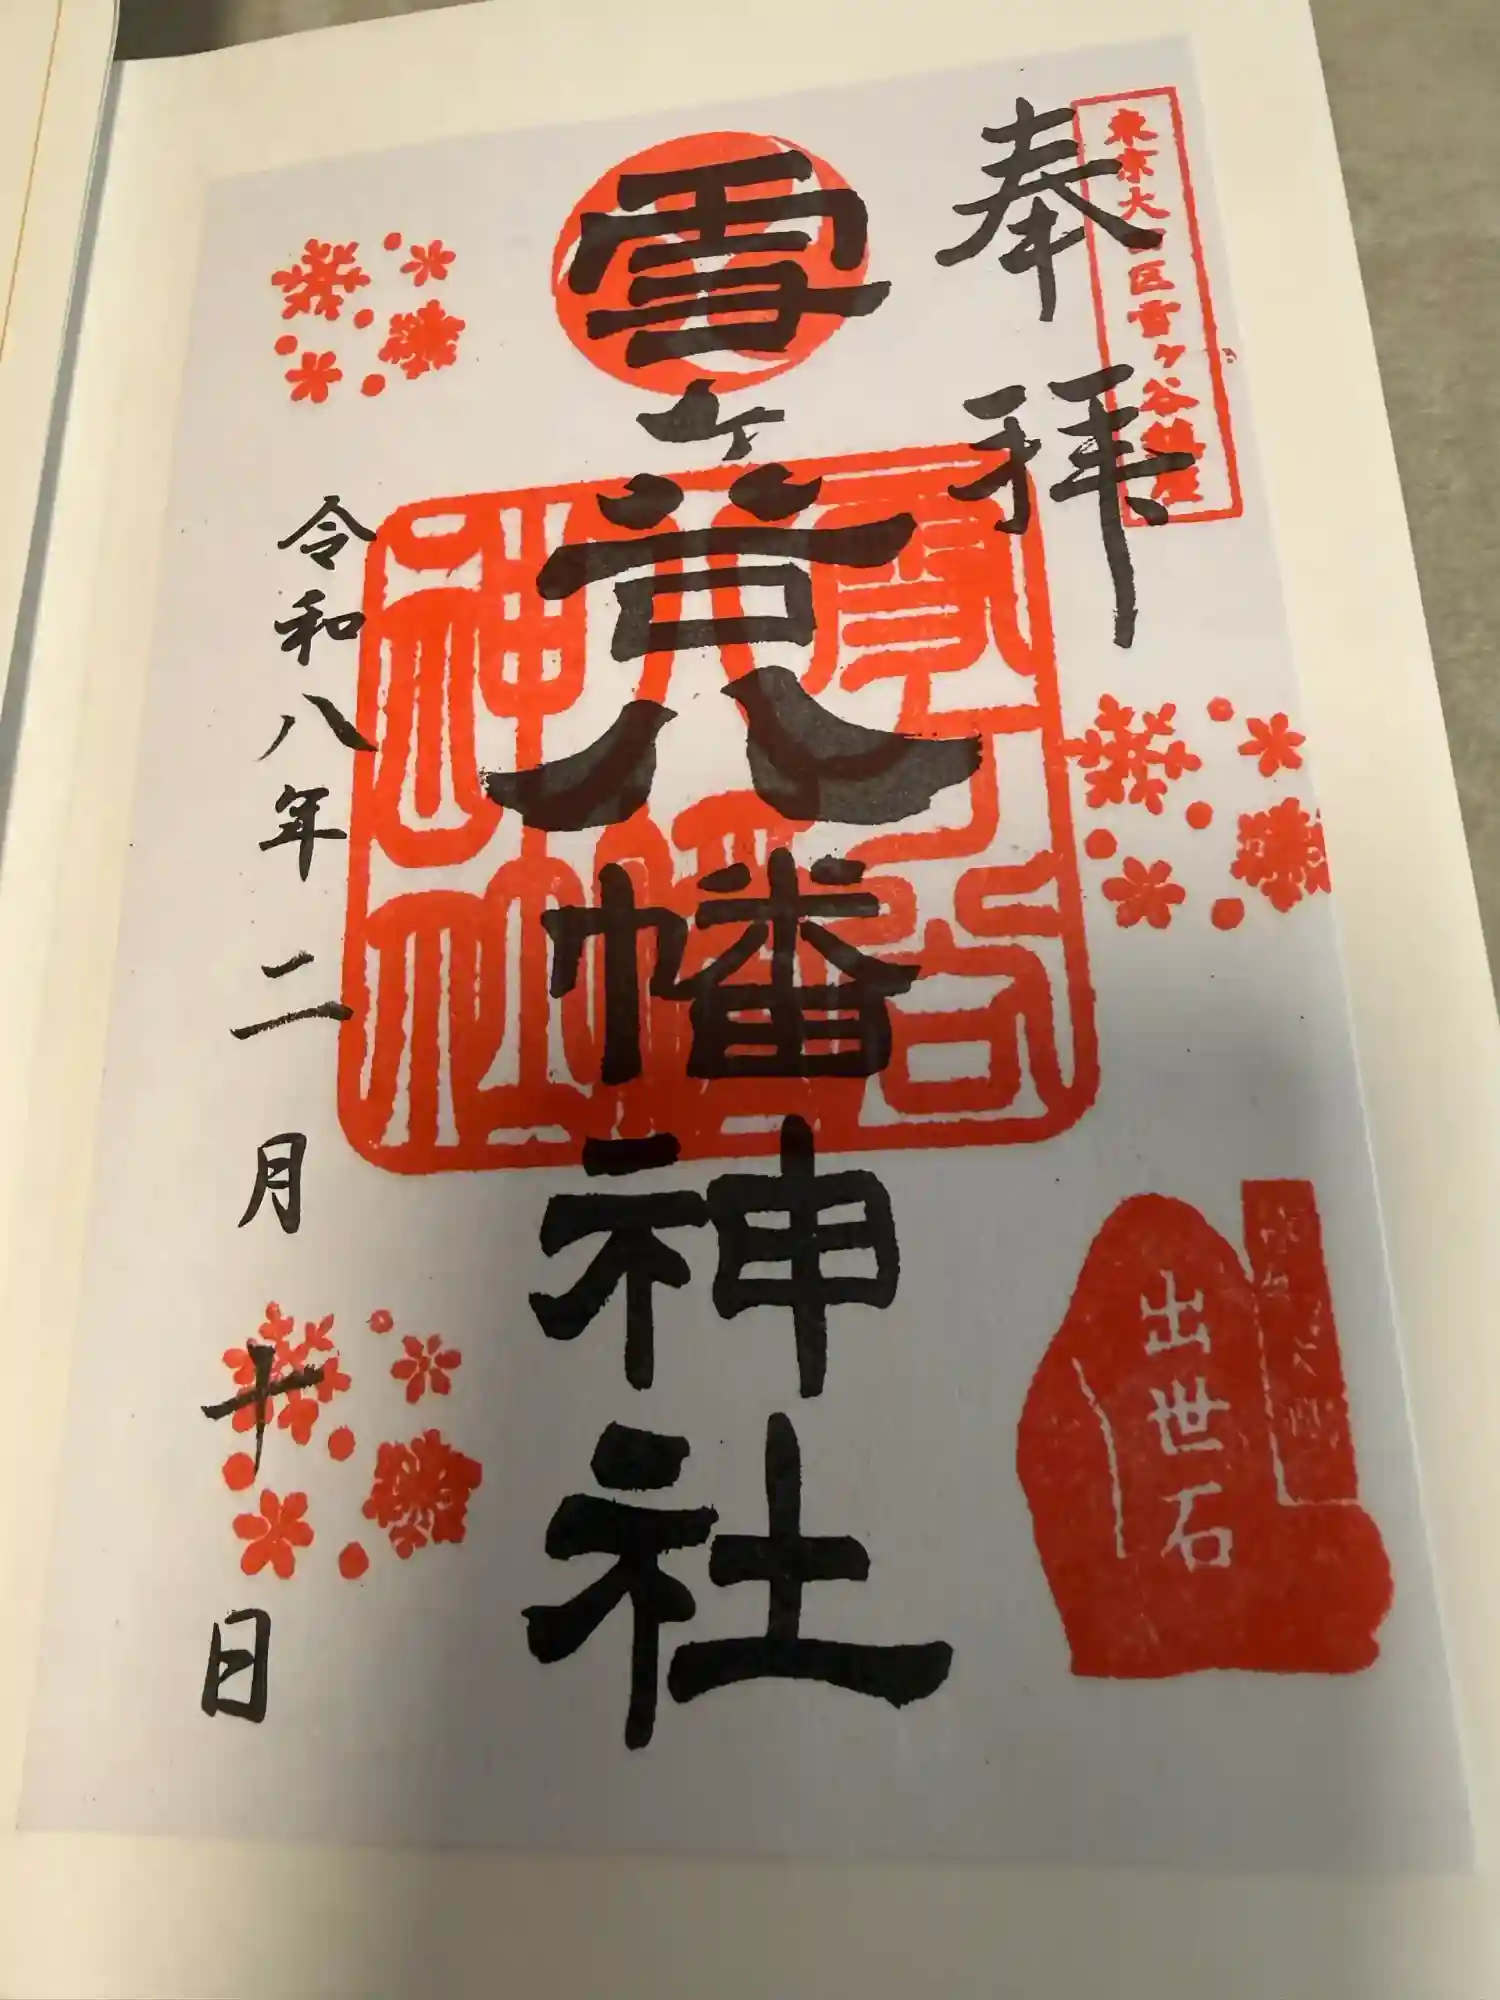 東京大田区雪ヶ谷鎮座
奉拝
雪ヶ谷八幡神社
雪ヶ谷
八幡
神社
出世石
令和八年二月十日